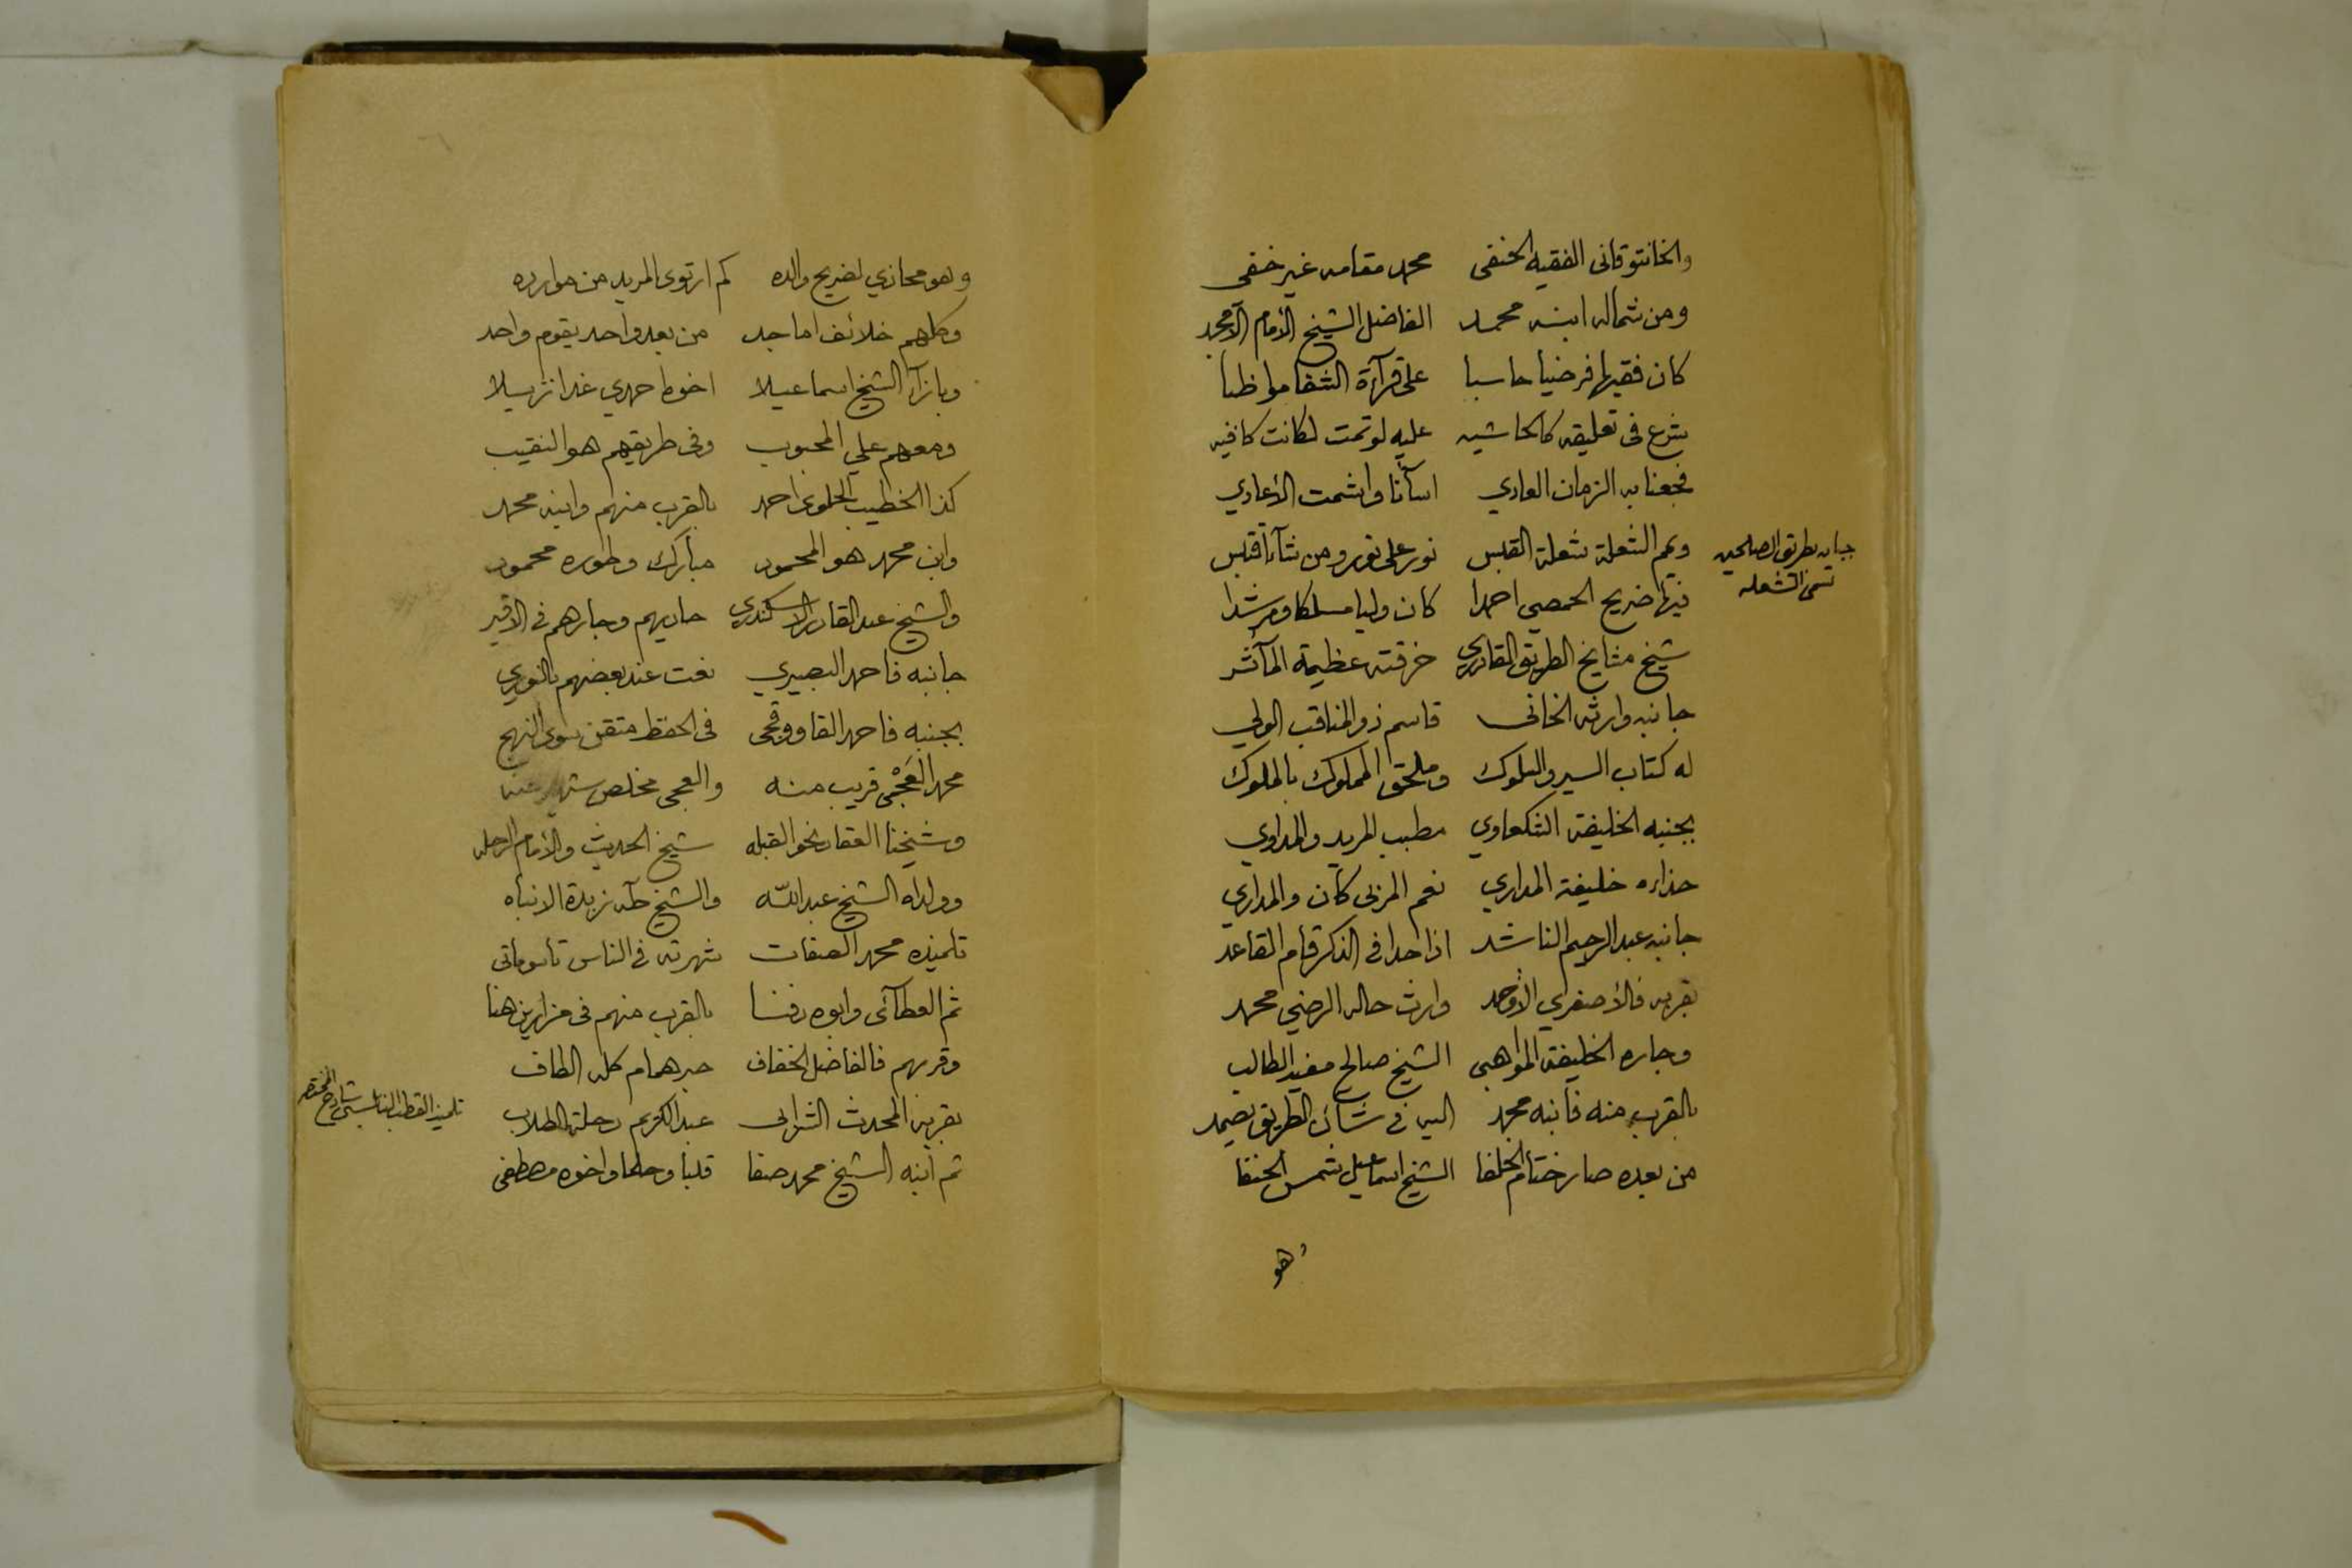 والخانتوقانى الفقيه الحنفى محمد مقامه غير خفى
ومن شماله ابنه محمد الفاضل الشيخ الأمام الأمجد
كان فقيها فرضيا حاسبا على قرآءة الشفا مواظبا
شرع فى تعليقه كالحاشيه عليه لو تمت لكانت كافيه
فجعنا به الزمان العادي اسآنا واشمت الأعادي
وثم الشعلة شعلة القبس نور على نور ومن شآء اقتبس
جبانه بطريق الصالحين
تسمى الشعله
فيها ضريح الحمصي احمدا كان وليا مسلكا ومرشدا
شيخ مشايخ الطريق القادري خرقته عظيمة المآثر
جانبه وارثه الخانى قاسم ذو المناقب الولي
له كتاب السير والسلوك وملحق المملوك بالملوك
بجنبه الخليفة الشكعاوي مطبب المريد والمداوي
حذاءه خليفة المداري نعم المربى كان والمداري
جانبه عبد الرحيم الناشد اذا حدا في الذكر قام القاعد
بقربه فالأصفري الأوحد وارث حاله الرضي محمد
وجاره الخليفة المواهبى الشيخ صالح مفيد الطالب
بالقرب منه فابنه محمد اليه في شأن الطريق يصمد
من بعده صار ختام الخلفا الشيخ اسماعيل شمس الحنفا
وهو
وهو محاذي لضريح والده كم ارتوى المريد من موارده
وكلهم خلائف اماجد من بعد واحد يقوم واحد
وبازآء الشيخ اسماعيلا اخوه احمدي غدا نزيلا
ومعهم علي المحبوب وفى طريقهم هو النقيب
كذا الخطيب الخلوى احمد بالقرب منهم وابنه محمد
وابن محمد هو المحمود مبارك وطوره محمود
والشيخ عبد القادر الاسكندري حاديهم وجارهم في الاقبر
جانبه فاحمد البصيري نعت عند بعضهم بالنوري
بجنبه فاحمد القاووقجى فى الحفظ متقن سوي النهج
محمد العجمى قريب منه والعجمى مخلص
وشيخنا العقاد نحو القبله شيخ الحديث والأمام الرحله
وولداه الشيخ عبد الله والشيخ طه زبدة الانباه
تلميذه محمد شهرته في الناس
ثم العطآئى وابوه دفنا بالقرب منهم فى مزارين هنا
وقربهم فالفاضل الخفاف حبر همام كله الطاف
بقربه المحدث الشراباتى عبد الكريم رحلة الطلاب
تلميذ القطب النابلسي شارح
ثم ابنه الشيخ محمد صفا قلبا وحلما واخوه مصطفى